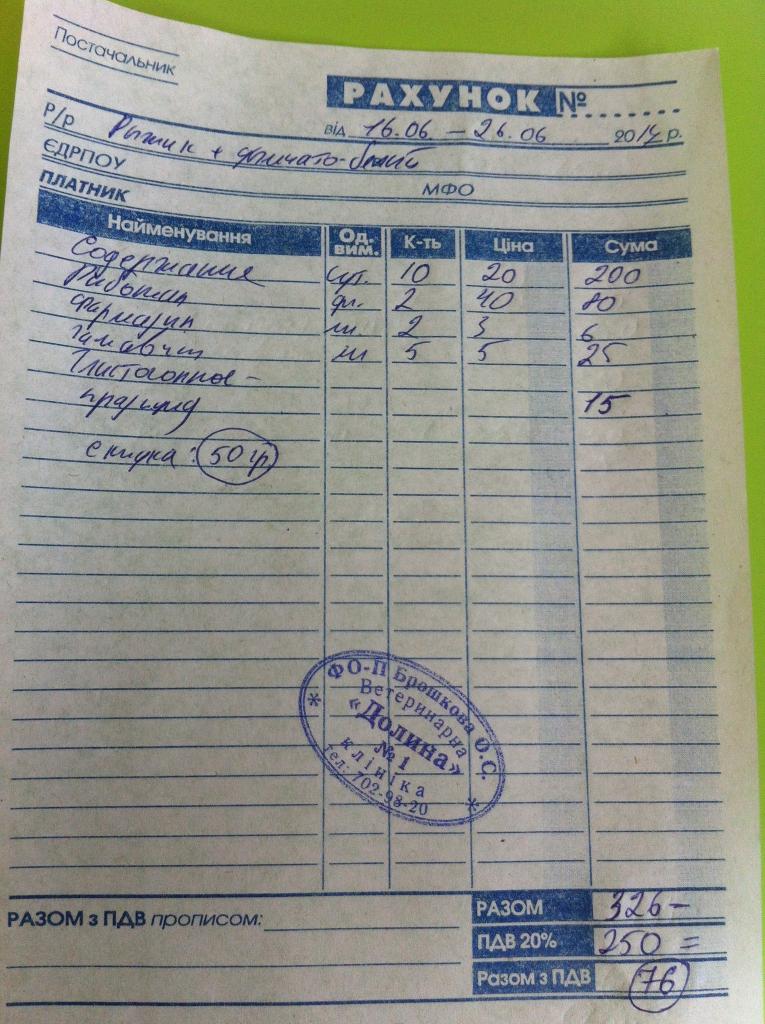 Постачальник
РАХУНОК №
від 16.06 – 26.06 2014 р.
Р/р Рыжик + дымчато-белый
ЄДРПОУ
МФО
ПЛАТНИК
Найменування Од. вим. К-ть Ціна Сума
Содержание сут. 10 20 200
фл. 2 40 80
2 3 6
5 5 25
Глистогонное –
празицид 15
скидка: 50 гр
ФО-П Брошкова О.С.
Ветеринарна
«Долина»
№ 1
клініка
тел: 702-98-20
РАЗОМ з ПДВ прописом:
РАЗОМ 326 –
ПДВ 20% 250 =
Разом з ПДВ 76